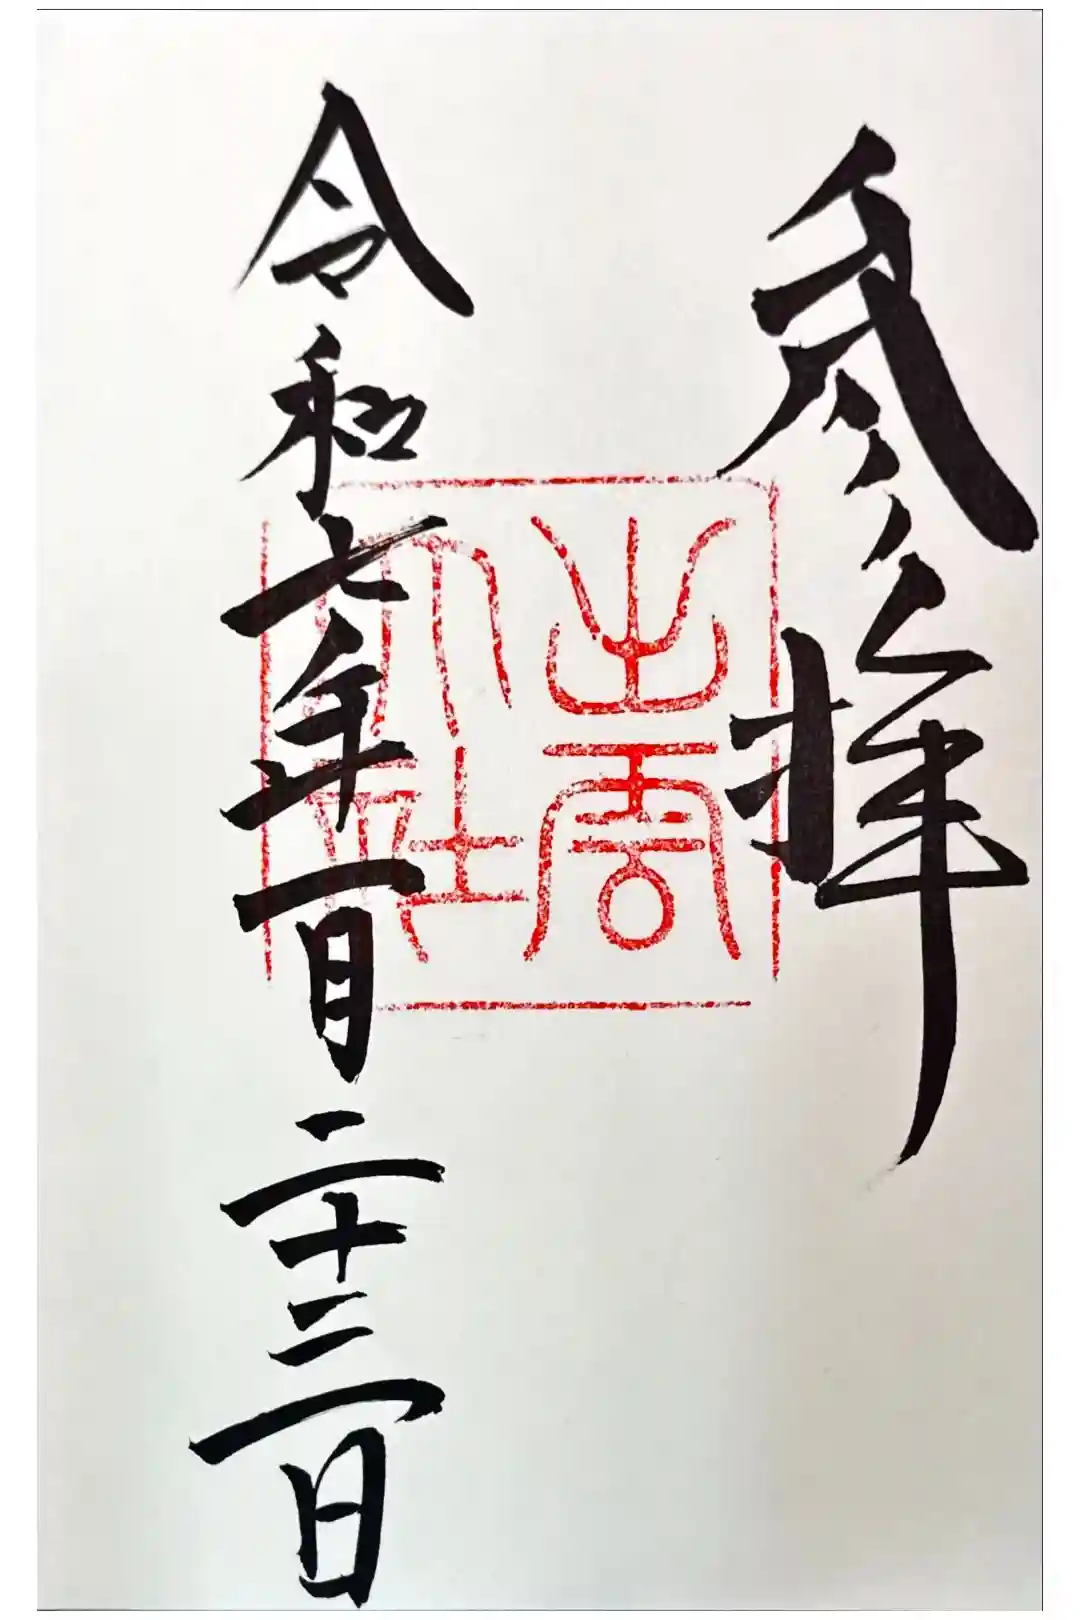 参拝
出雲
大社
令和七年一月二十三日